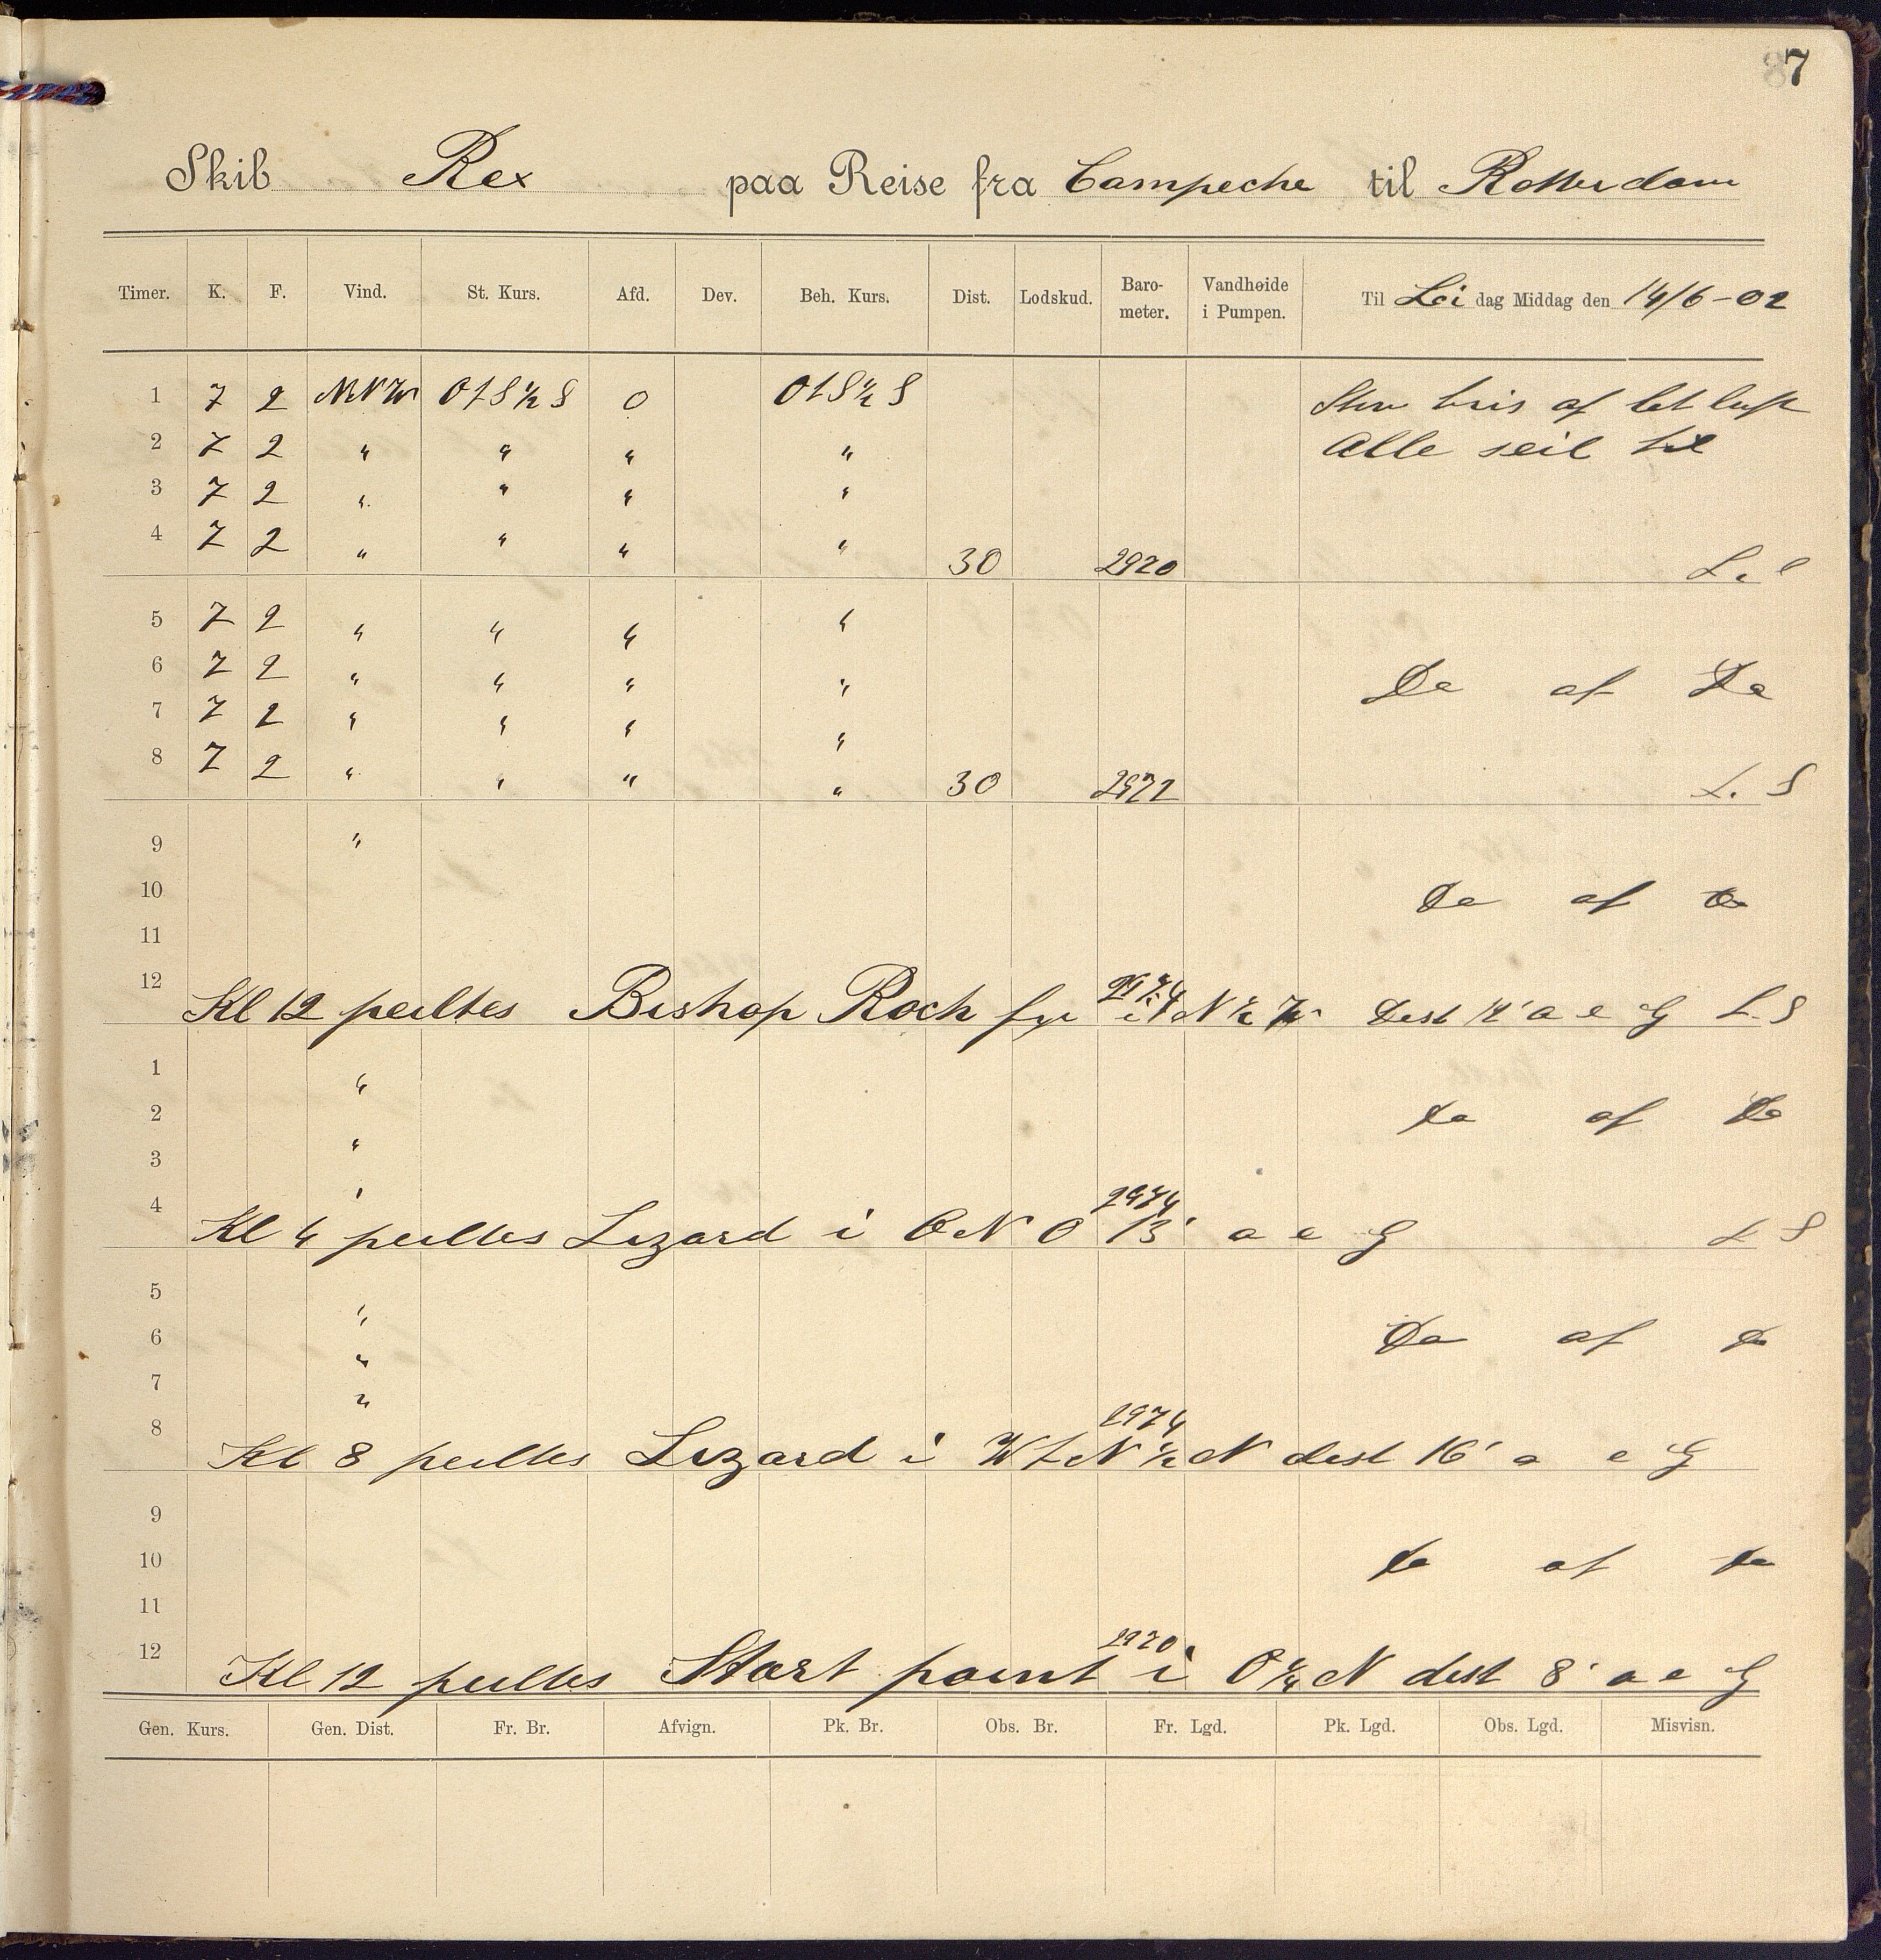 87
Skib Rex paa Reise fra Campeche til Rotterdam
Timer. K. F. Vind. St. Kurs. Afd. Dev. Beh. Kurs. Dist. Lodskud. Baro-meter. Vandhøide i Pumpen. Til Lör dag Middag den 14/6-02
1 7 2 NNW OtS½S 0 OtS½S bris af let luft
2 7 2 " " " " Alle seil til
3 7 2 " " " "
4 7 2 " " " " 30 2920
5 7 2 " " " "
6 7 2 " " " " Do af Do
7 7 2 " " " "
8 7 2 " " " " 30 2972 L. S
9 "
10 Do af Do
11
12 Kl 12 peiltes Bishop Rock fyr i N½W Dist 12' a e G L. S
1 "
2 Do af Do
3 "
4 " 2974
Kl 4 peiltes Lizard i ONO 13' a e G L S
5 "
6 " Do af Do
7 "
8 2974
Kl 8 peiltes Lizard i WtN½N dist 16' a e G
9
10 Do af Do
11
12 2970
Kl 12 peiltes Start point i O¼N dist 8' a e G
Gen. Kurs. Gen. Dist. Fr. Br. Afvign. Pk. Br. Obs. Br. Fr. Lgd. Pk. Lgd. Obs. Lgd. Misvisn.